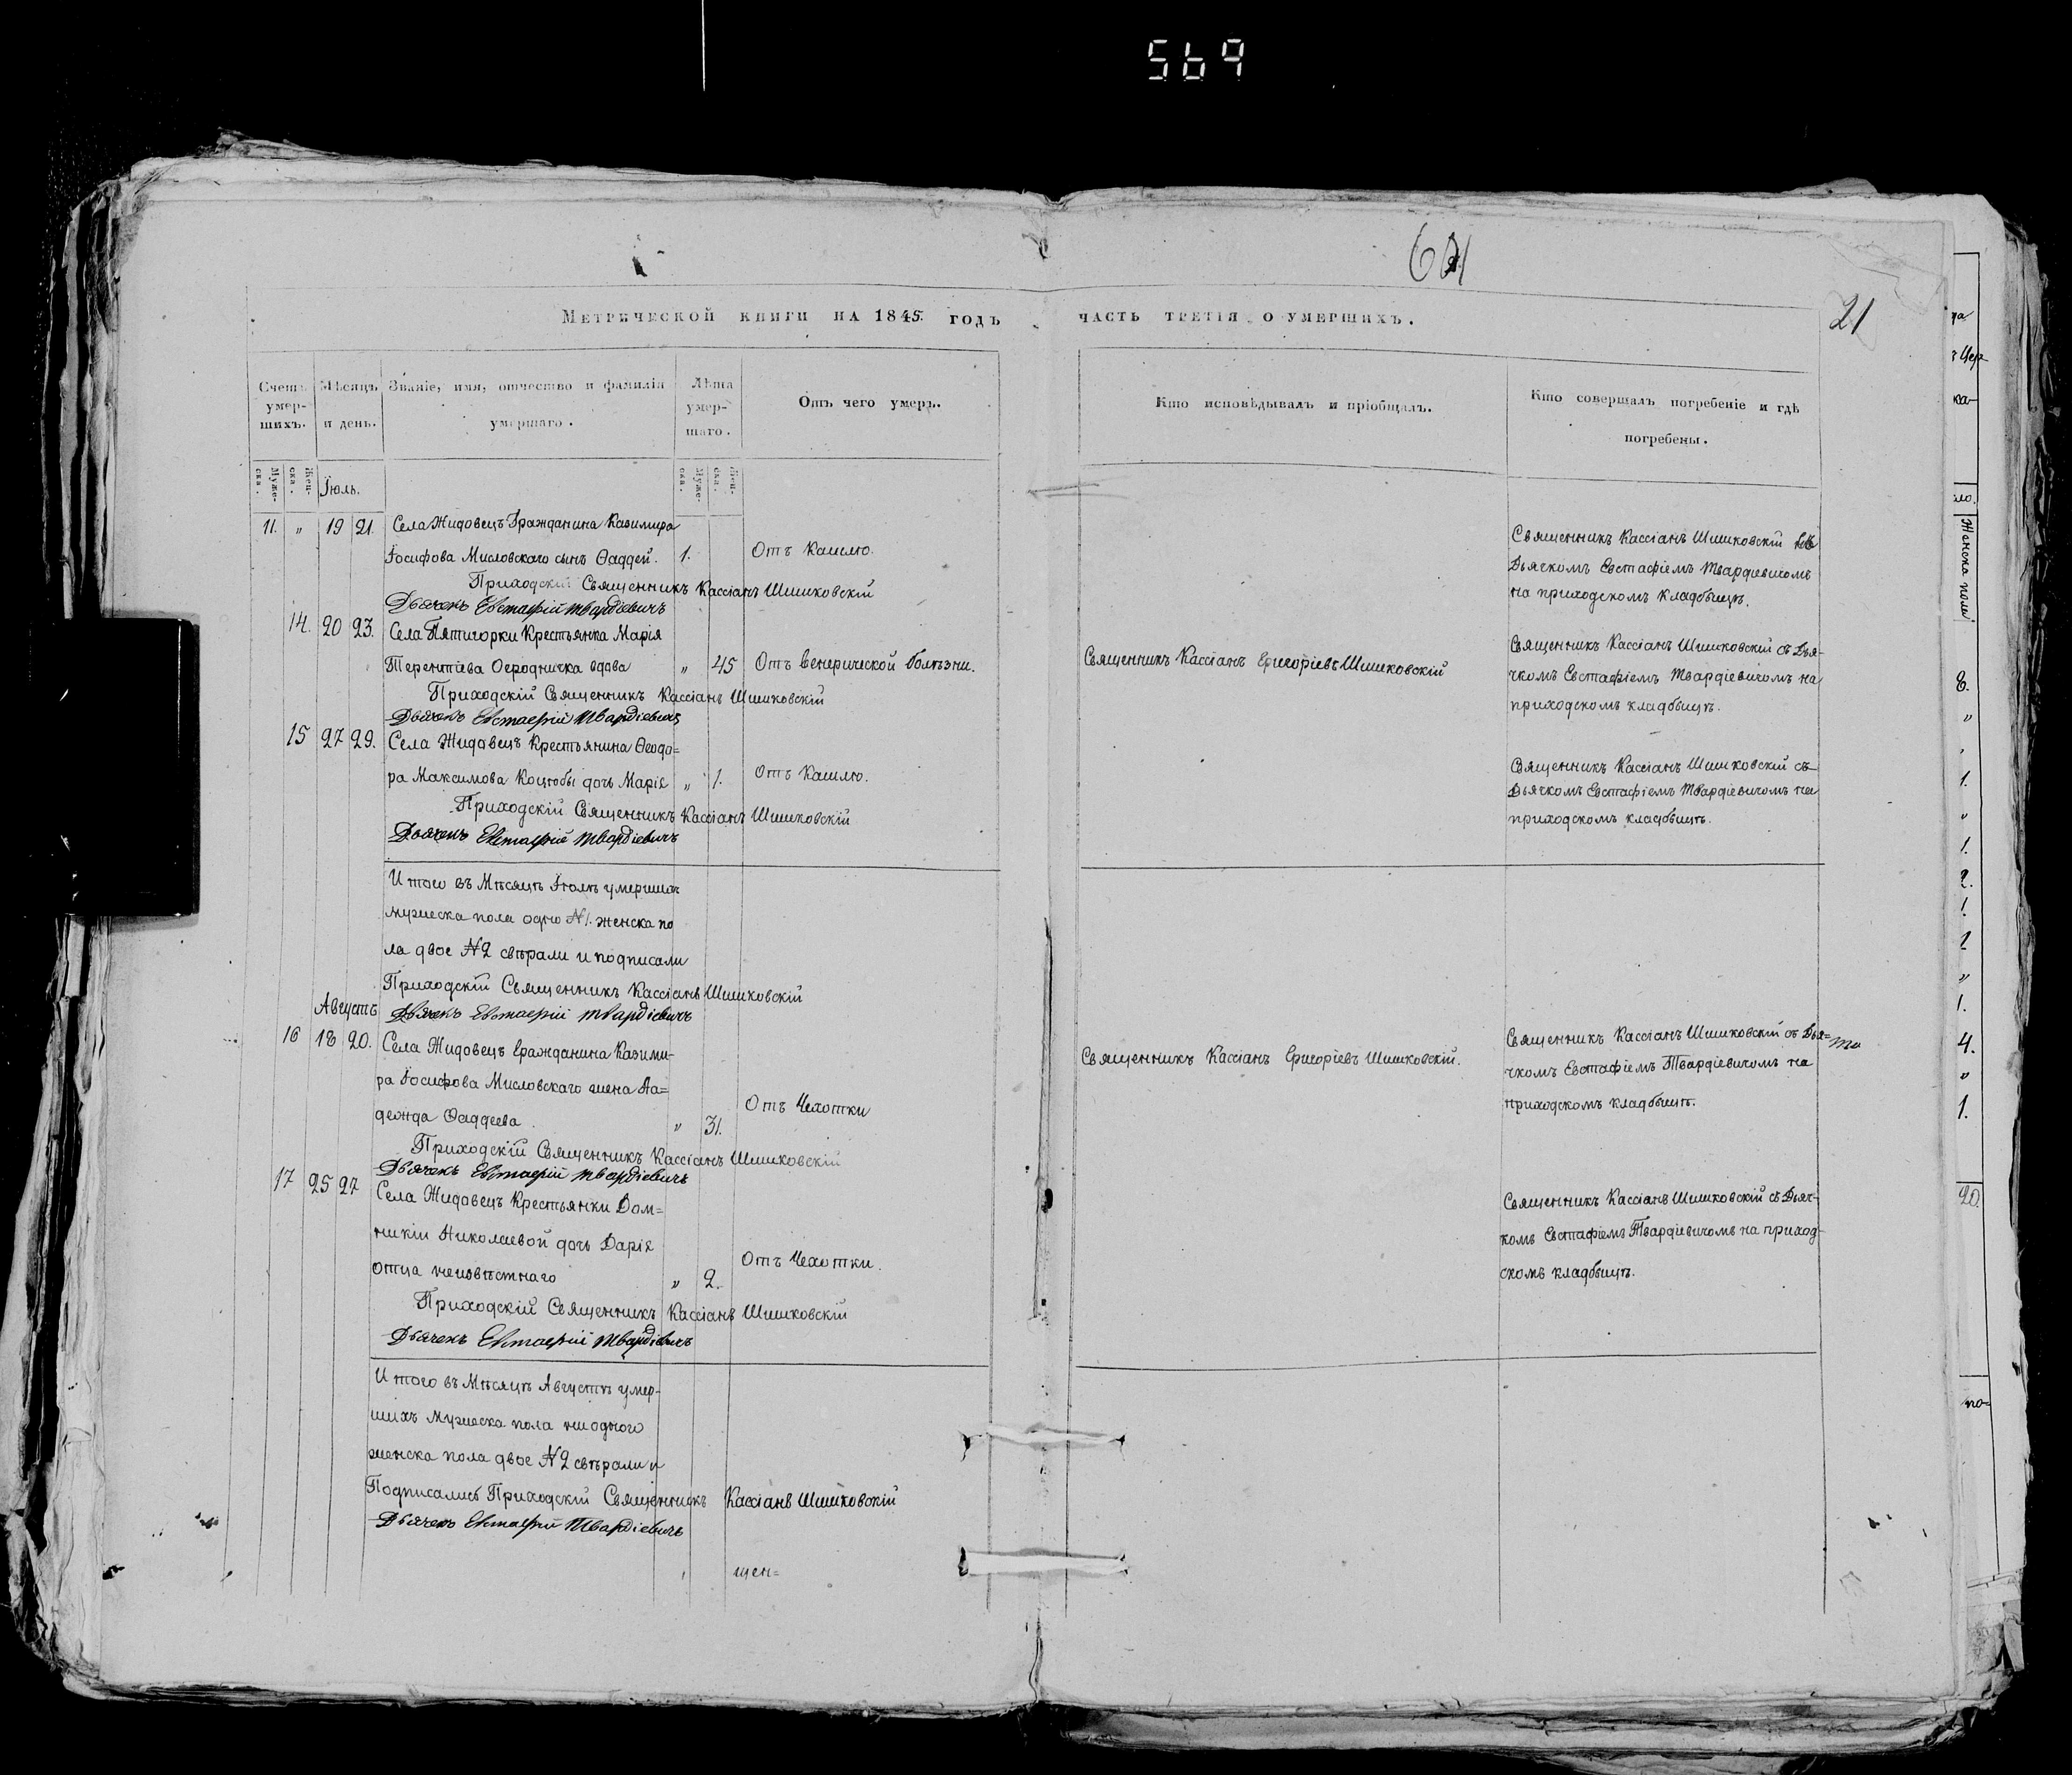 569
21
Метрической книги на 1845. годъ
часть третія о умершихъ.
Счетъ умер-шихъ.
Мѣсяцъ и день.
Званіе, имя, отчество и фамилія умершаго.
Лѣта умер-шаго.
Отъ чего умеръ.
Кто исповѣдывалъ и пріобщалъ.
Кто совершалъ погребеніе и гдѣ
погребены.
Муже-ска.
Жен-ска.
Іюль.
Муже-ска.
Жен-ска.
11. " 19 21. Села Жидовецъ Гражданина Казимира
Іосифова Мисловскаго сынъ Ѳаддей. 1. Отъ Кашлю.
Священникъ Кассіанъ Шишковскій
Дьячкомъ Евстафіемъ Твардіевичомъ
на приходскомъ кладбыщѣ.
Приходскій Священникъ Кассіанъ Шишковскій
Дьячекъ Евстафій Твардіевичъ
14. 20 23. Села Пятигорки Крестьянка Марія
Терентіева Огородничка вдова " 45 Отъ венерической болѣзни.
Священникъ Кассіанъ Григоріевъ Шишковскій
Священникъ Кассіанъ Шишковскій съ Дья-
чкомъ Евстафіемъ Твардіевичомъ на
приходскомъ кладбыщѣ.
Приходскій Священникъ Кассіанъ Шишковскій
Дьячекъ Евстафій Твардіевичъ
15 27 29. Села Жидовецъ Крестьянина Ѳеодо=
ра Максимова Коцюбы дочь Марія " 1. Отъ Кашлю.
Священникъ Кассіанъ Шишковскій съ
Дьячкомъ Евстафіемъ Твардіевичомъ на
приходскомъ кладбыщѣ.
Приходскій Священникъ Кассіанъ Шишковскій
Дьячекъ Евстафій Твардіевичъ
Итого въ Мѣсяцѣ Іюлѣ умершихъ
мужеска пола одно №1. женска по
ла двое №2 свѣрали и подписали
Приходскій Священникъ Кассіанъ Шишковскій
Дьячекъ Евстафій Твардіевичъ
Августъ
16 18 20. Села Жидовецъ Гражданина Казими-
ра Іосифова Мисловскаго жена На=
дежда Ѳаддеева. " 31. Отъ Чехотки
Священникъ Кассіанъ Григоріевъ Шишковскій.
Священникъ Кассіанъ Шишковскій съ Дья=
чкомъ Евстафіемъ Твардіевичомъ на
приходскомъ кладбыщѣ.
Приходскій Священникъ Кассіанъ Шишковскій
Дьячекъ Евстафій Твардіевичъ
17 25 27 Села Жидовецъ Крестьянки Дом=
никіи Николаевой дочь Дарія
отца неизвѣстнаго " 2. Отъ Чехотки.
Священникъ Кассіанъ Шишковскій съ Дьяч-
комъ Евстафіемъ Твардіевичомъ на приход-
скомъ кладбыщѣ.
Приходскій Священникъ Кассіанъ Шишковскій
Дьячекъ Евстафій Твардіевичъ
Итого въ Мѣсяцѣ Августѣ умер-
шихъ мужеска пола ниодного
женска пола двое №2 свѣрали и
Подписались Приходскій Священникъ Кассіанъ Шишковскій
Дьячекъ Евстафій Твардіевичъ
щен=
Женска пола
8.
"
1.
"
1.
2.
1.
1
"
1.
4.
"
1.
20.